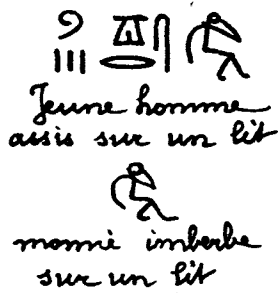 Jeune homme
assis sur un lit
momie imberbe
sur un lit